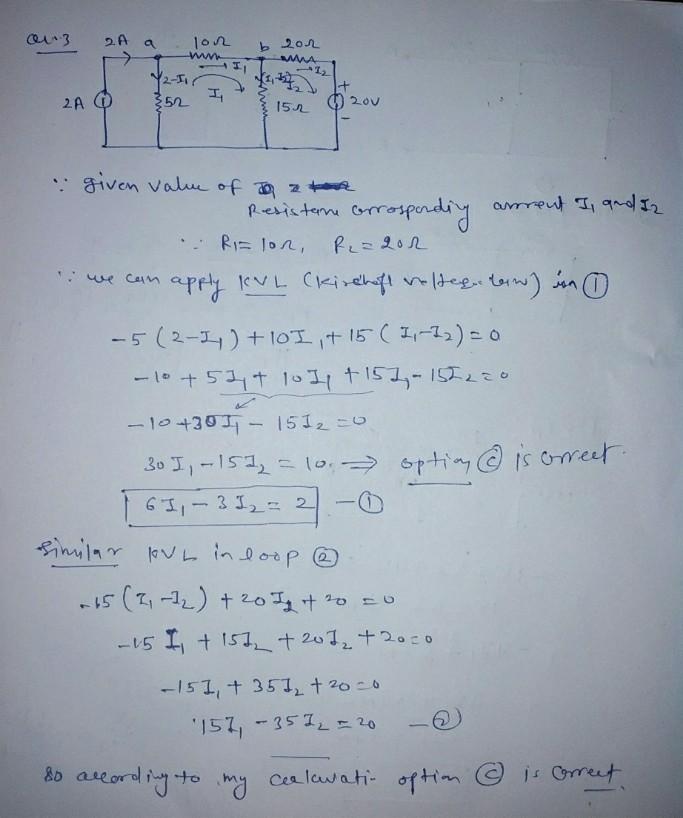 Qu.3 2A a 10Ω b 20Ω
I₁ I₂
2-I₁ I₁ (I₁-I₂) I₂ +
2A 5Ω 15Ω 20V
-
∵ given value of
Resistance corrosponding current I₁ and I₂
∵ R₁= 10Ω, R₂= 20Ω
∵ we can apply KVL (Kirchoft voltage law) in ①
-5 (2-I₁) + 10I₁ + 15 (I₁-I₂) = 0
-10 + 5I₁ + 10I₁ + 15I₁ - 15I₂ = 0
-10 + 30I₁ - 15I₂ = 0
30I₁ - 15I₂ = 10. ⇒ option ⓒ is correct.
6I₁ - 3I₂ = 2 -①
Similar KVL in loop ②
-15 (I₁-I₂) + 20I₂ + 20 = 0
-15 I₁ + 15I₂ + 20I₂ + 20 = 0
-15I₁ + 35I₂ + 20 = 0
15I₁ - 35I₂ = 20 -②
So according to my calculati- option ⓒ is correct.